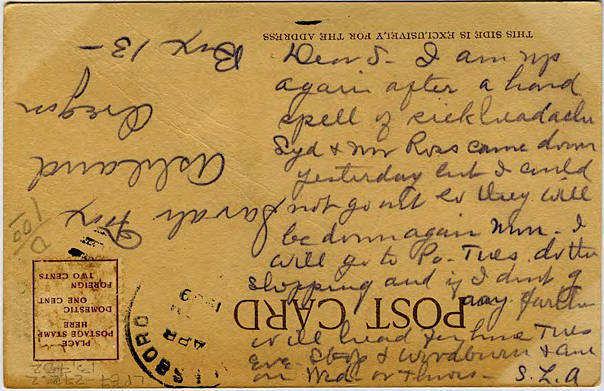 THIS SIDE IS EXCLUSIVELY FOR THE ADDRESS
Dear S- I am up
again after a hard
spell of sickheadache
Syd & Mr Ross came down
yesterday but I could
not go out so they will
be down again Mon. I
will go to Po- Tues. do the
shopping and if I dont g
any farther
will head for home Tues
eve Stop & Woodburn &
on Wed. or Thurs- S.L.A
POST CARD
Sarah Fox
Ashland
Oregon
Box 13-
PLACE
POSTAGE STAMP
HERE
DOMESTIC
ONE CENT
FOREIGN
TWO CENTS
SBORO
APR